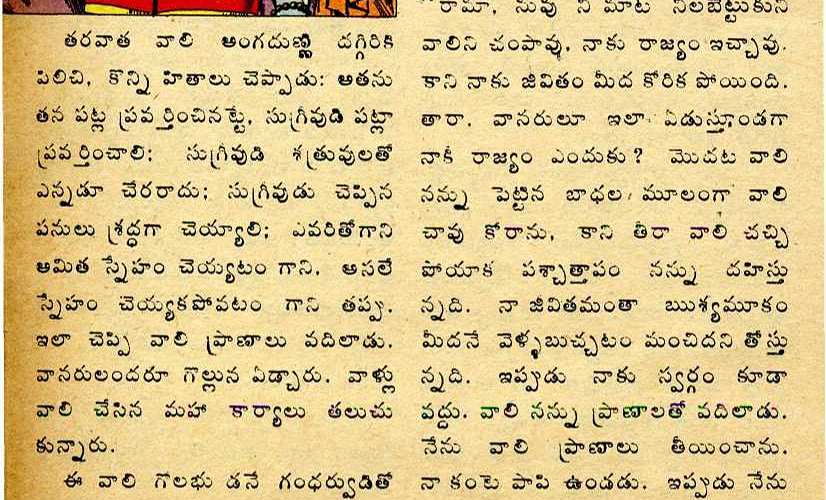 తరవాత వాలి అంగదుణ్ణి దగ్గిరికి
పిలిచి, కొన్ని హితాలు చెప్పాడు: అతను
తన పట్ల ప్రవర్తించినట్టే, సుగ్రీవుడి పట్లా
ప్రవర్తించాలి; సుగ్రీవుడి శత్రువులతో
ఎన్నడూ చేరరాదు; సుగ్రీవుడు చెప్పిన
పనులు శ్రద్ధగా చెయ్యాలి; ఎవరితోగాని
అమిత స్నేహం చెయ్యటం గాని, అసలే
స్నేహం చెయ్యకపోవటం గాని తప్పు.
ఇలా చెప్పి వాలి ప్రాణాలు వదిలాడు.
వానరులందరూ గొల్లున ఏడ్చారు. వాళ్ళు
వాలి చేసిన మహా కార్యాలు తలుచు
కున్నారు.
ఈ వాలి గోలభు డనే గంధర్వుడితో
రామా, నువు నీ మాట నిలబెట్టుకుని
వాలిని చంపావు, నాకు రాజ్యం ఇచ్చావు.
కాని నాకు జీవితం మీద కోరిక పోయింది.
తారా, వానరులూ ఇలా ఏడుస్తూండగా
నాకీ రాజ్యం ఎందుకు? మొదట వాలి
నన్ను పెట్టిన బాధల మూలంగా వాలి
చావు కోరాను, కాని తీరా వాలి చచ్చి
పోయాక పశ్చాత్తాపం నన్ను దహిస్తు
న్నది. నా జీవితమంతా ఋశ్యమూకం
మీదనే వెళ్ళబుచ్చటం మంచిదని తోస్తు
న్నది. ఇప్పుడు నాకు స్వర్గం కూడా
వద్దు. వాలి నన్ను ప్రాణాలతో వదిలాడు.
నేను వాలి ప్రాణాలు తీయించాను.
నా కంటె పాపి ఉండడు. ఇప్పుడు నేను